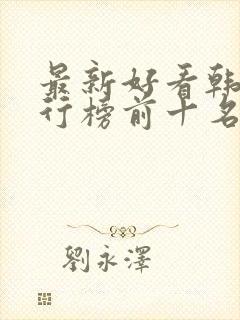 最新好看韩
行榜前十名
劉永澤